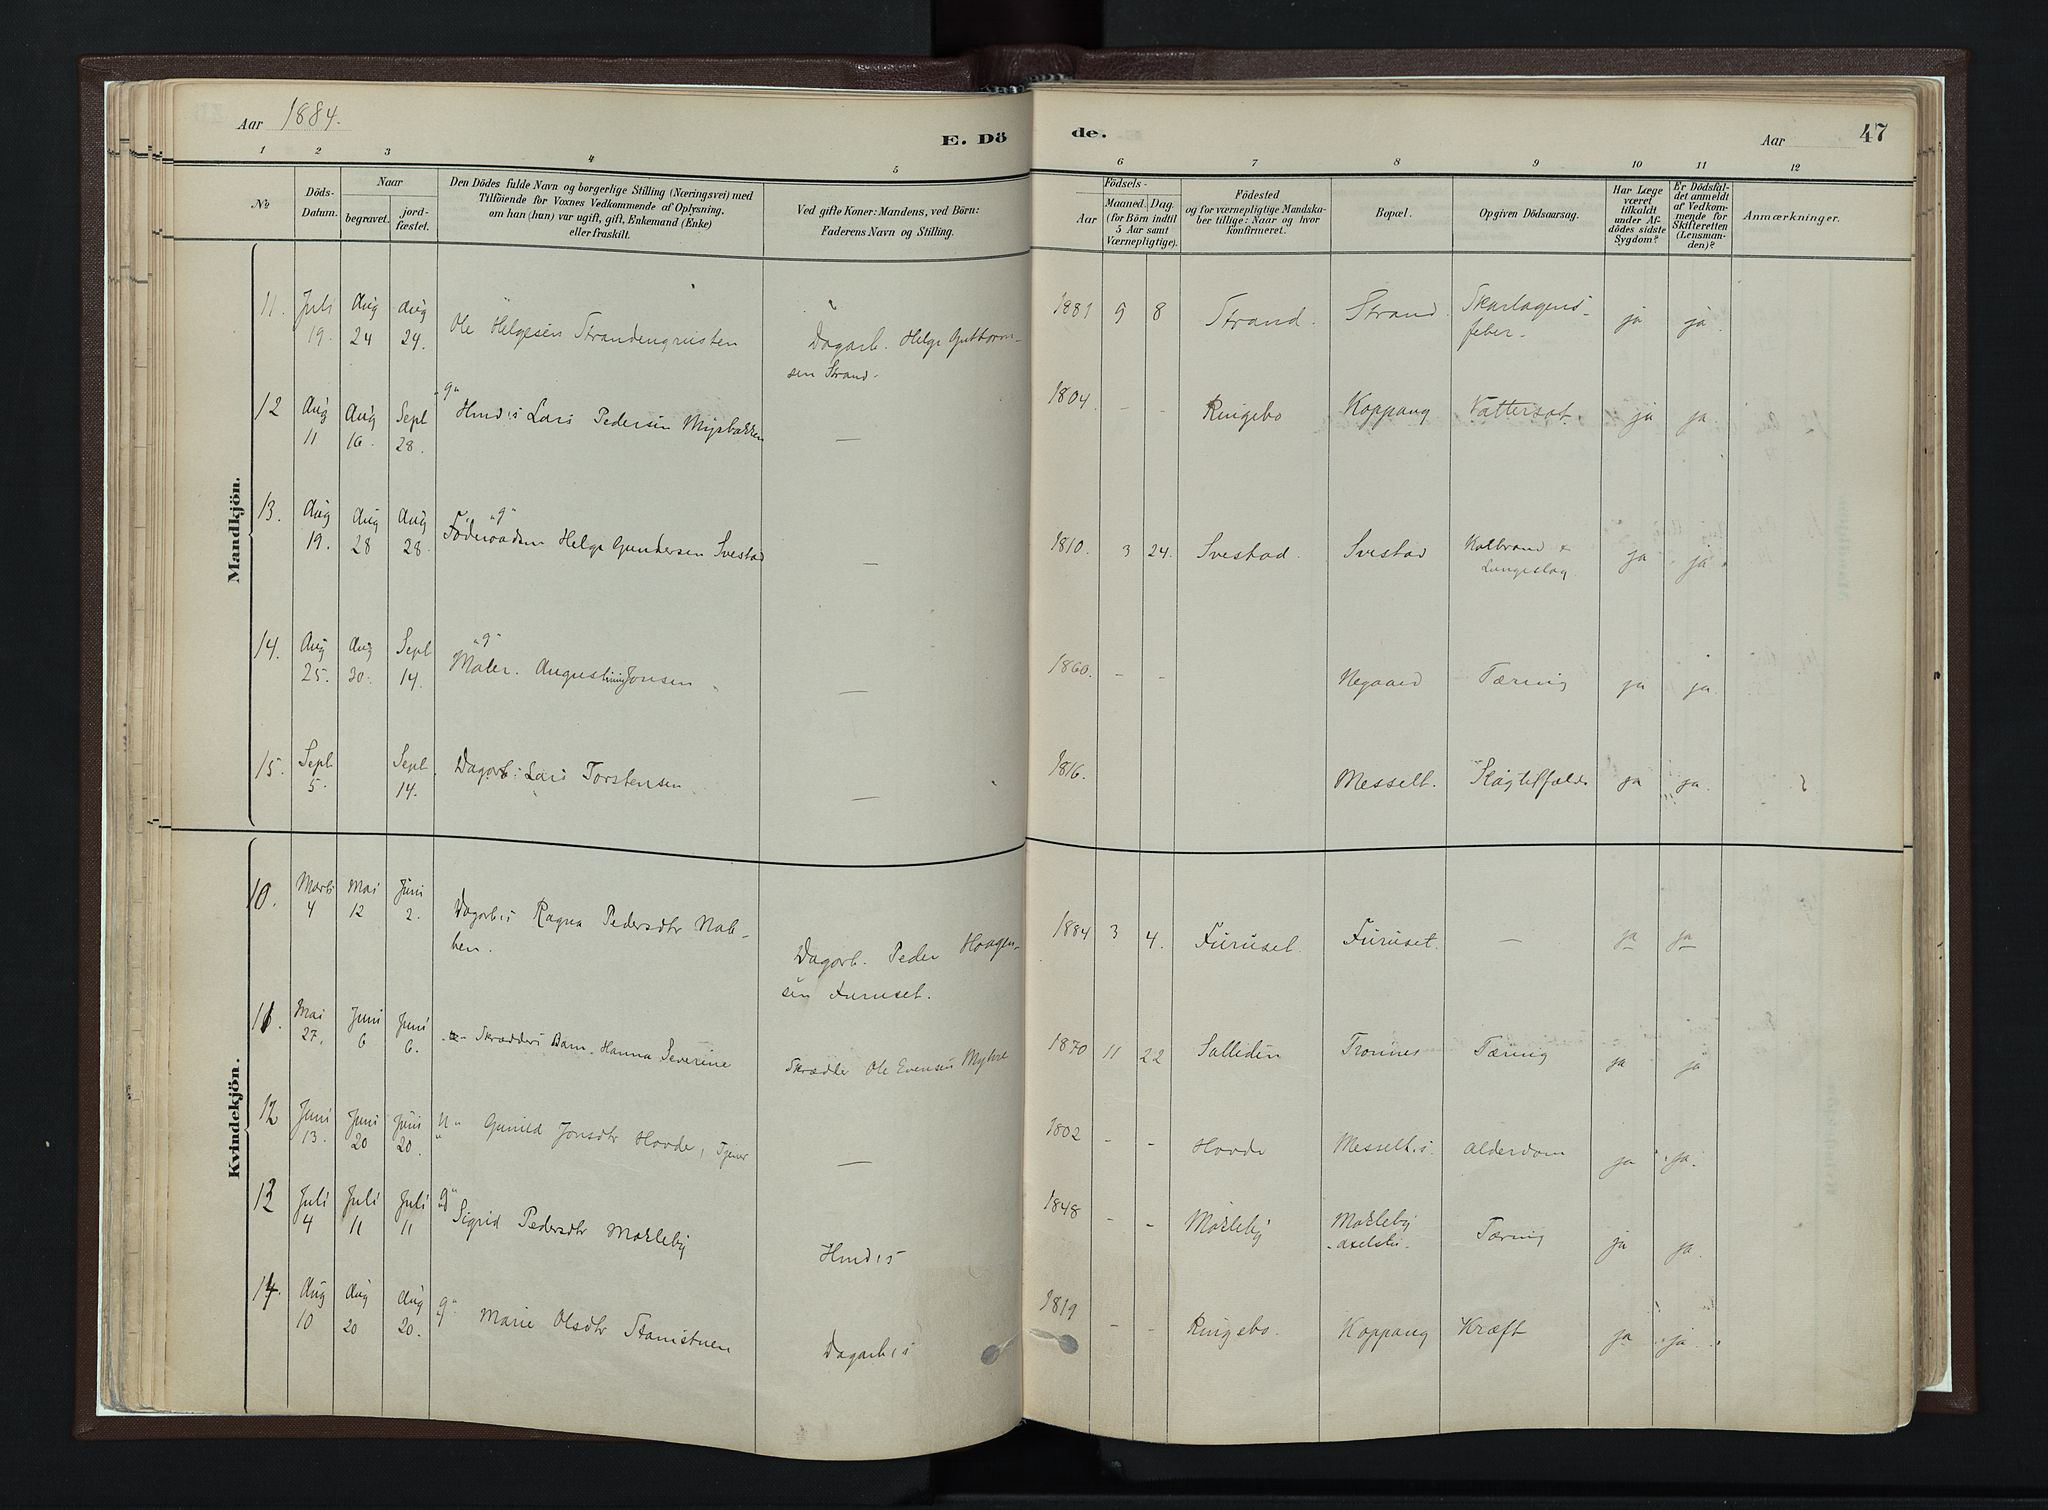 Aar 1884.
E. Döde.
Aar
47
1 2 3 4 5 6 7 8 9 10 11 12
No
Döds-Datum.
Naar
begravet.
jord-fæstet.
Den Dödes fulde Navn og borgerlige Stilling (Næringsvei) med
Tilföiende for Voxnes Vedkommende af Oplysning,
om han (hun) var ugift, gift, Enkemand (Enke)
eller fraskilt.
Ved gifte Koner: Mandens, ved Börn:
Faderens Navn og Stilling.
Födsels-
Aar
Maaned. Dag.
(for Börn indtil
5 Aar samt
Værnepligtige).
Födested
og for værnepligtige Mandska-
ber tillige: Naar og hvor
konfirmeret.
Bopæl.
Opgiven Dödsaarsag.
Har Læge
været
tilkaldt
under Af-
dödes sidste
Sygdom?
Er Dödsfal-
det anmeldt
af Vedkom-
mende for
Skifteretten
(Lensman-
den)?
Anmærkninger.
Mandkjön.
11. Juli 19. Aug 24 Aug 24. Ole Helgesen Strandenqvisten Dagarb. Helge Guttorm-
sen Strand. 1881 9 8 Strand. Strand. Skarlagens-
feber. ja ja.
12 Aug 11 Aug 16. Sept 28. "g" Hmds Lars Pedersen Myrbakken — 1804. - - Ringebo Koppang Vattersot. ja ja.
13. Aug 19. Aug 28 Aug 28. "g" Föderaadsm Helge Gundersen Svestad — 1810. 3 24. Svestad. Svestad Koldbrand &
Lungeslag ja ja.
14. Aug 25. Aug 30. Sept 14. "g" Maler. Augustinus Jonsen — 1860. - - Negaard Tæring ja ja.
15. Sept 5. Sept 14. Dagarb: Lars Torstensen — 1816. Messelt. ja ja.
Kvindekjön.
10. Marts 4 Mai 12 Juni 2. Dagarbs Ragna Pedersdtr Nab-
ben. Dagarb. Peder Haagen-
sen Furuset. 1884 3 4. Furuset. Furuset. — ja ja
11. Mai 27. Juni 6 Juni 6. Skrædders Barn. Hanna Severine Skrædder Ole Evensen Myhre 1870 11 22 Sollidén Tronnes Tæring ja ja
12 Juni 13. Juni 20 Juni 20. "u" Gunild Jonsdtr Hovde, Tjener — 1802 - - Hovde Messelts. Alderdom ja ja.
13 Juli 4 Juli 11 Juli 11 "g" Sigrid Pedersdtr Moxleby Hmds 1848 - - Moxleby Moxleby
Tæring ja ja.
14. Aug 10 Aug 20 Aug 20. "g" Marie Olsdtr Stamstuen Dagarbs 1819 - - Ringebo. Koppang Kræft ja ja